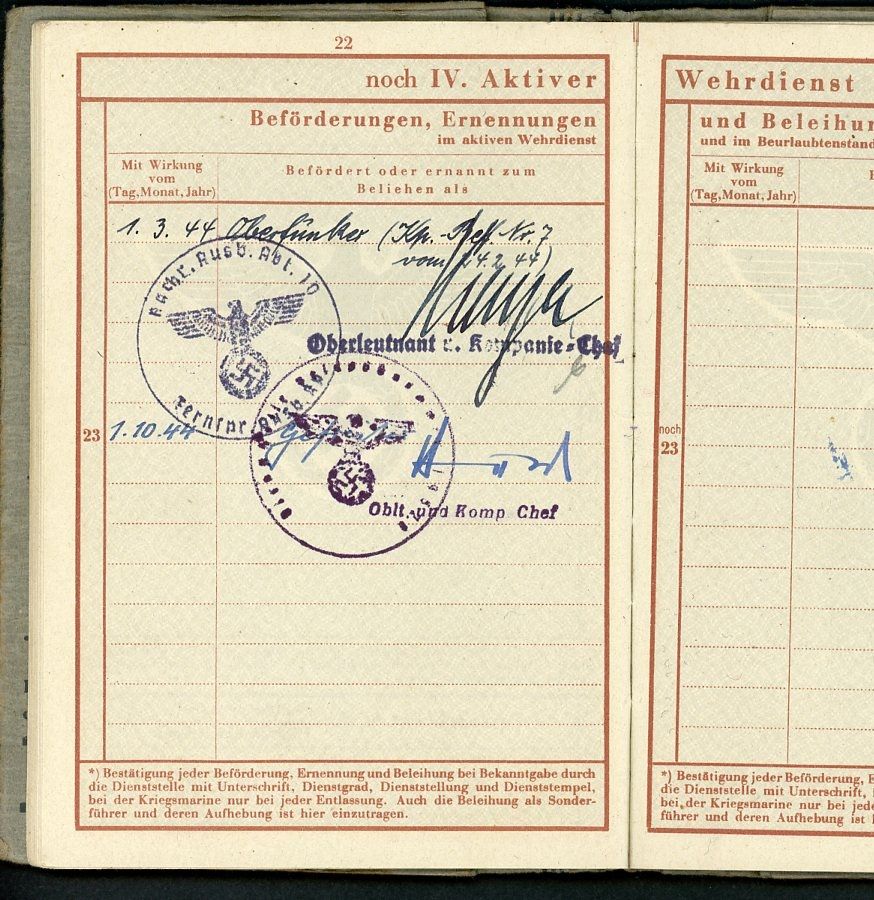 22
noch IV. Aktiver
Beförderungen, Ernennungen
im aktiven Wehrdienst
Mit Wirkung
vom
(Tag, Monat, Jahr)
Befördert oder ernannt zum
Beliehen als
1. 3. 44 Oberfunker (Kp.-Bef. Nr. 7
vom 24.2.44)
Nachr. Ausb. Abt. 10
Oberleutnant u. Kompanie-Chef
Fernspr.
23
1.10.44 Gefreiter
Oblt. und Komp. Chef
*) Bestätigung jeder Beförderung, Ernennung und Beleihung bei Bekanntgabe durch
die Dienststelle mit Unterschrift, Dienstgrad, Dienststellung und Dienststempel,
bei der Kriegsmarine nur bei jeder Entlassung. Auch die Beleihung als Sonder-
führer und deren Aufhebung ist hier einzutragen.
Wehrdienst
und Beleihun
und im Beurlaubtenstand
Mit Wirkung
vom
(Tag, Monat, Jahr)
noch
23
*) Bestätigung jeder Beförderung, E
die Dienststelle mit Unterschrift,
bei der Kriegsmarine nur bei jede
führer und deren Aufhebung ist